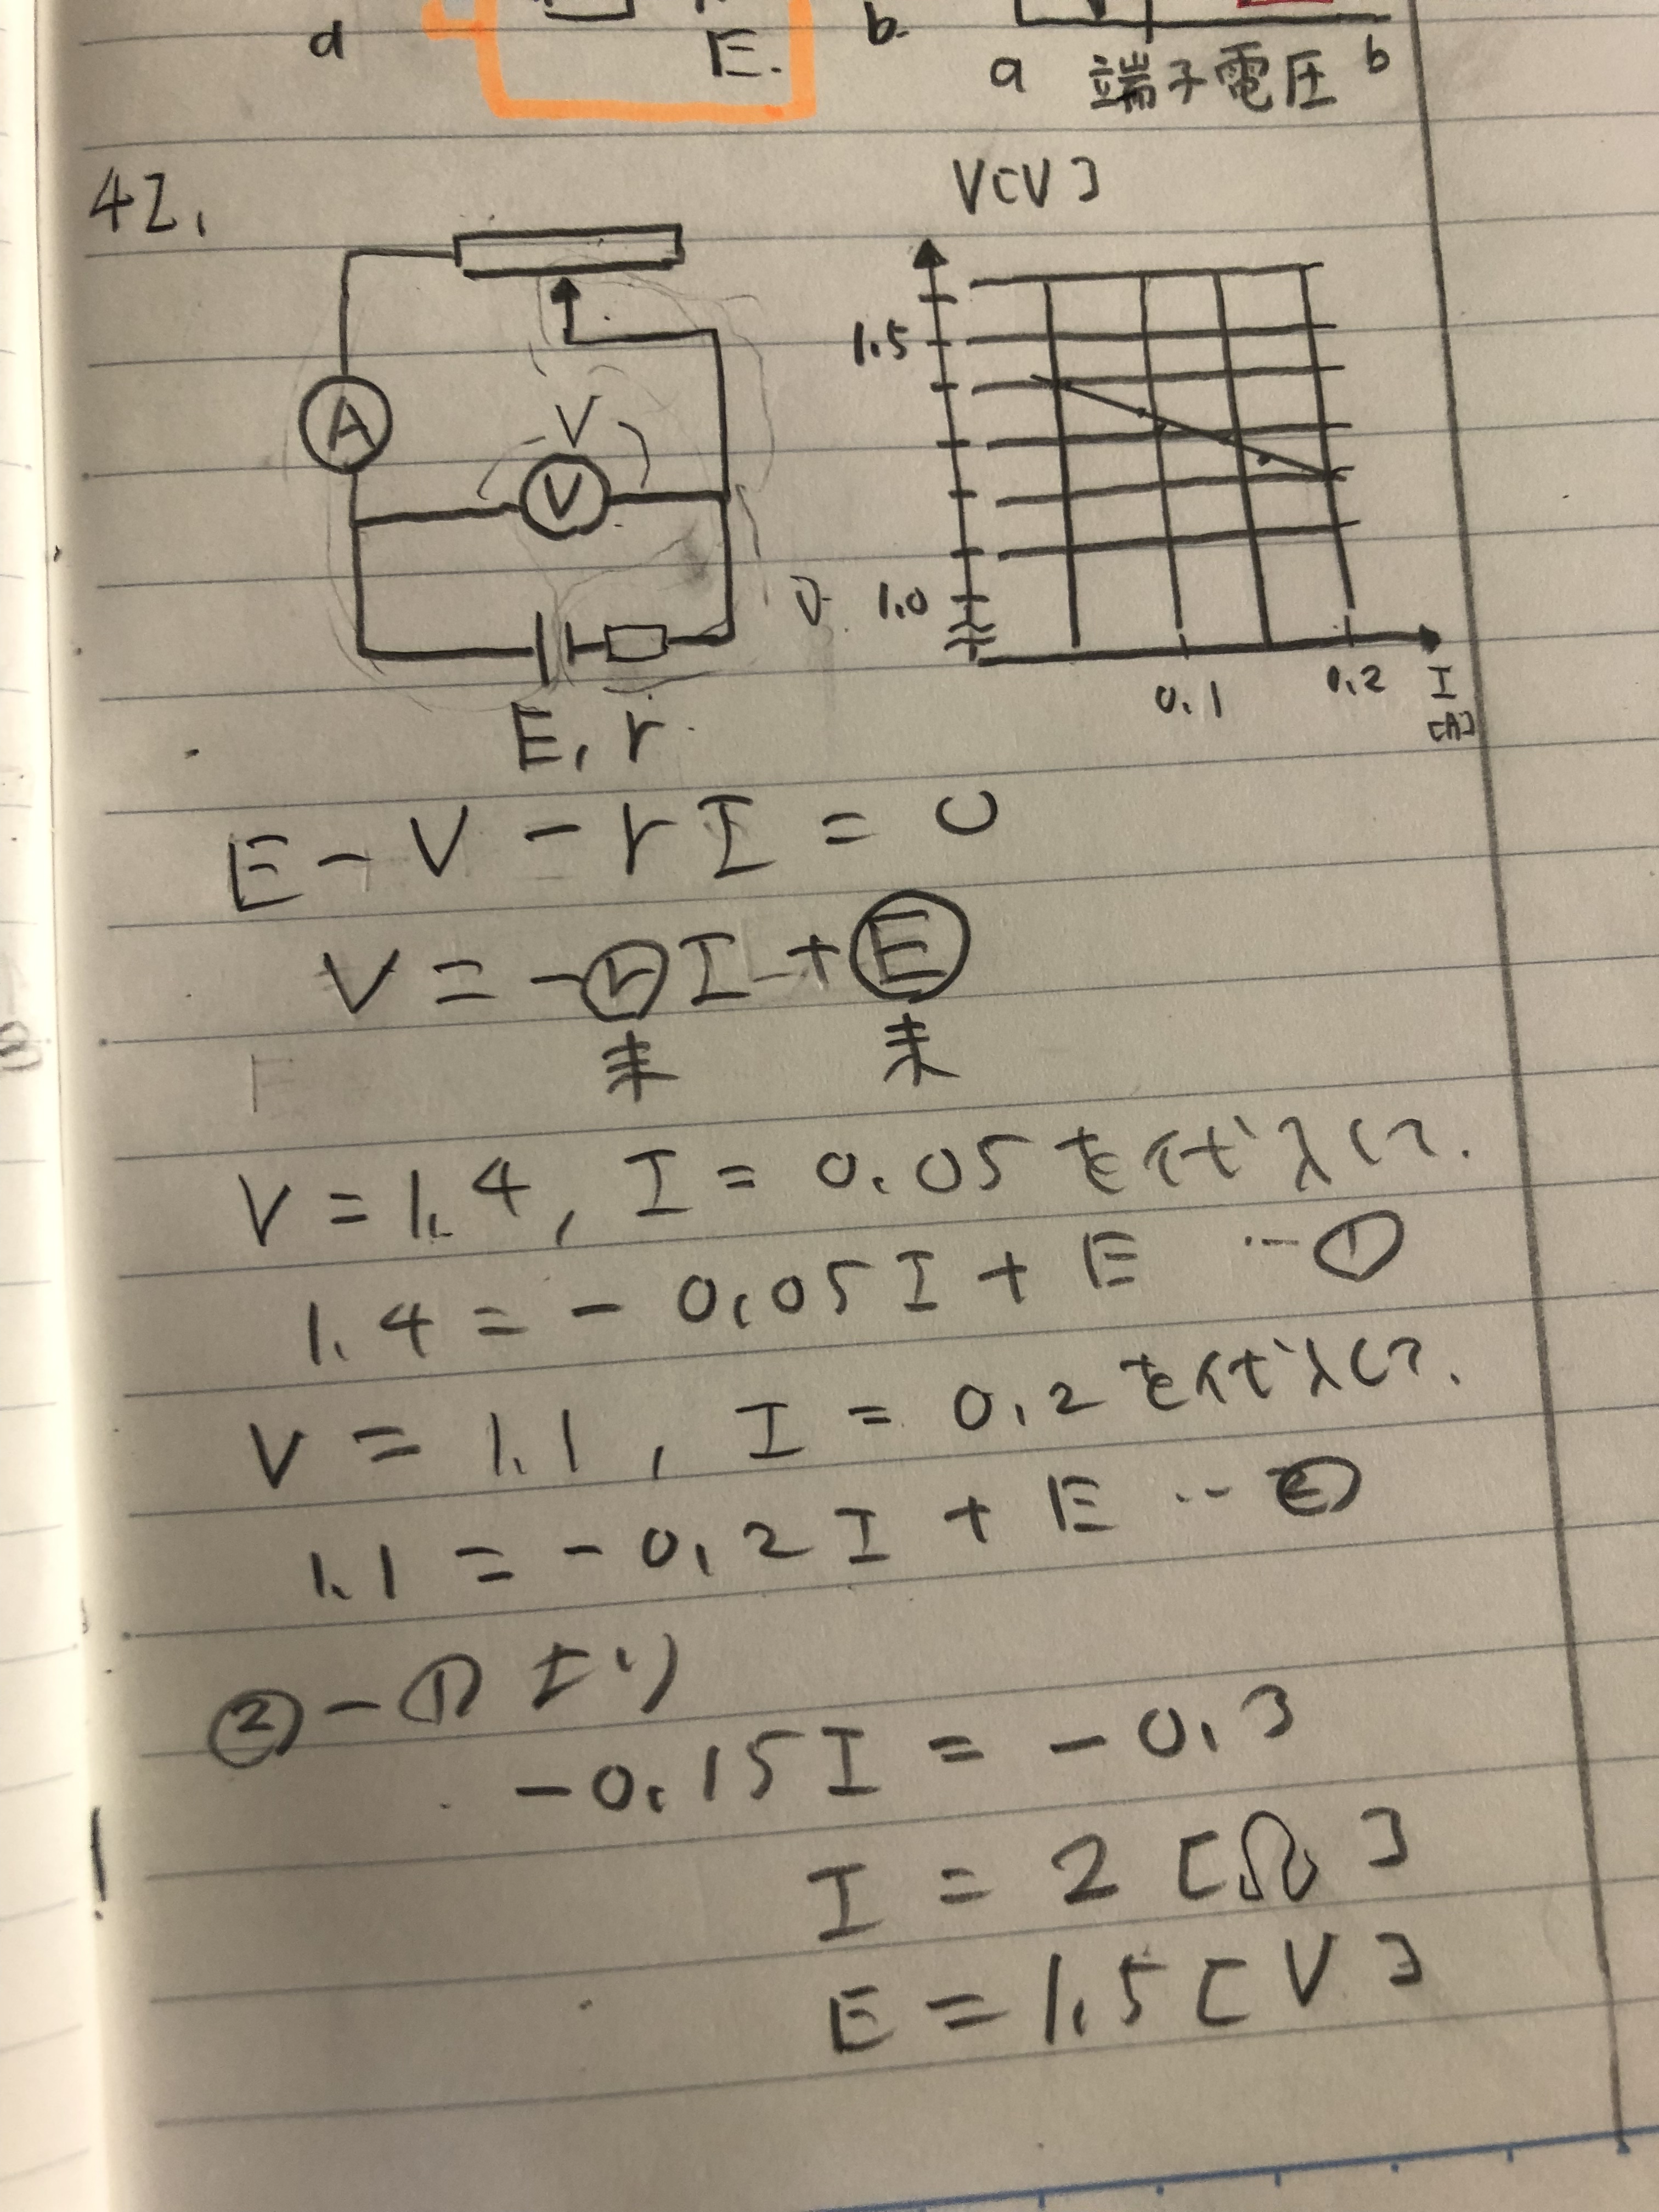 a
E.
b.
a 端子電圧 b
42.
V[V]
1.5
A
V
V
1.0
0.1
0.2
I
[A]
E, r
E - V - rI = 0
V = -rI + E
未 未
V = 1.4, I = 0.05 を代入して.
1.4 = - 0.05I + E … ①
V = 1.1, I = 0.2 を代入して.
1.1 = - 0.2I + E … ②
② - ① より
-0.15I = - 0.3
I = 2 [Ω]
E = 1.5 [V]